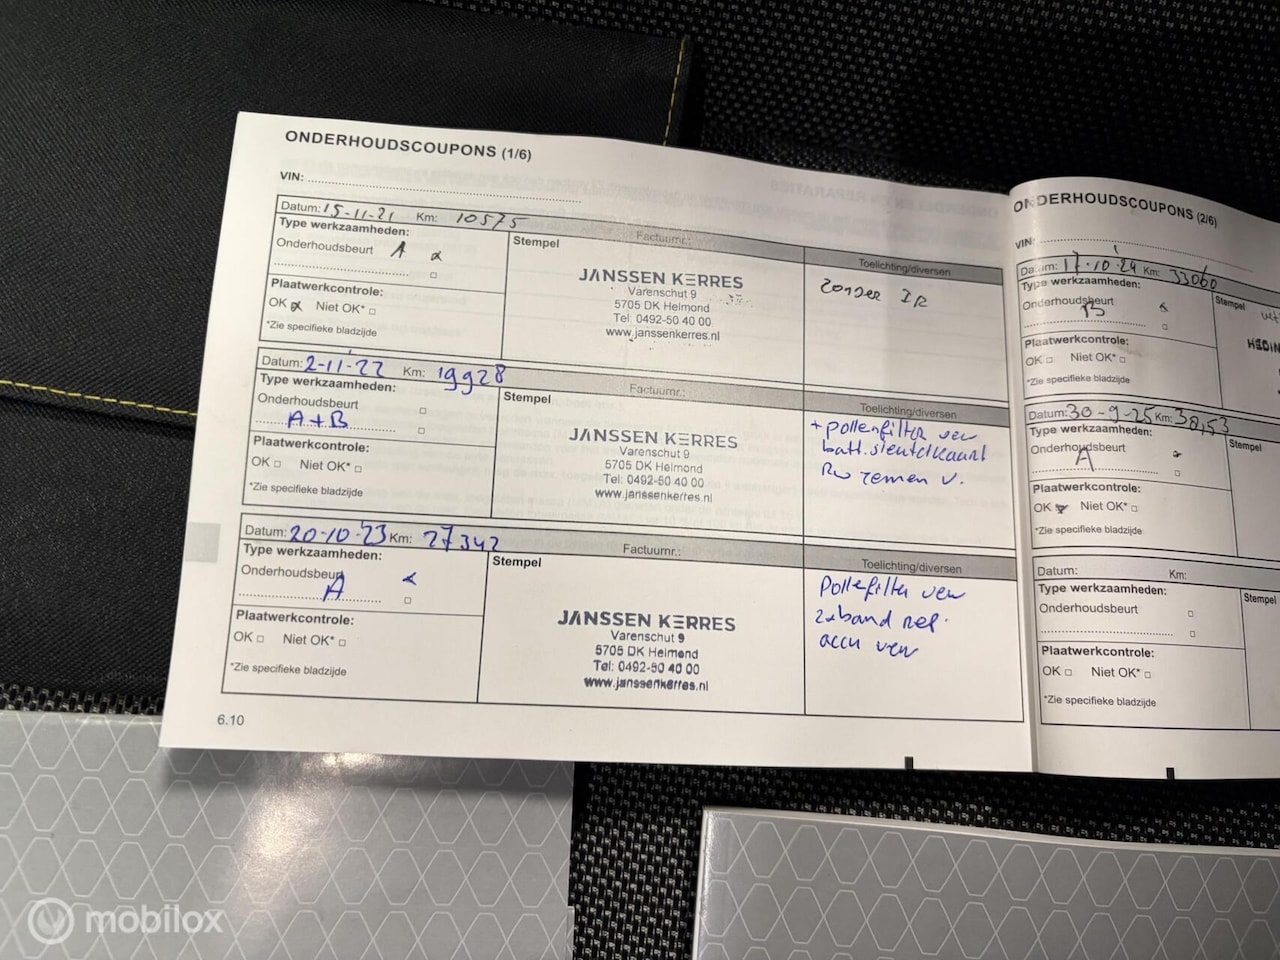 ONDERHOUDSCOUPONS (1/6)
VIN:
Datum: 15-11-21 Km: 10575
Type werkzaamheden:
Onderhoudsbeurt A
Plaatwerkcontrole:
OK Niet OK*
*Zie specifieke bladzijde
Stempel
Factuurnr.:
JANSSEN KERRES
Varenschut 9
5705 DK Helmond
Tel. 0492-50 40 00
www.janssenkerres.nl
Toelichting/diversen
zonder IR
Datum: 2-11-22 Km: 19928
Type werkzaamheden:
Onderhoudsbeurt
A+B
Plaatwerkcontrole:
OK Niet OK*
*Zie specifieke bladzijde
Stempel
Factuurnr.:
JANSSEN KERRES
Varenschut 9
5705 DK Helmond
Tel: 0492-50 40 00
www.janssenkerres.nl
Toelichting/diversen
+ pollenfilter ver
batt. sleutelkaart
Rw remen v.
Datum: 20-10-23 Km: 27342
Type werkzaamheden:
Onderhoudsbeurt
A
Plaatwerkcontrole:
OK Niet OK*
*Zie specifieke bladzijde
Stempel
Factuurnr.:
JANSSEN KERRES
Varenschut 9
5705 DK Helmond
Tel: 0492-50 40 00
www.janssenkerres.nl
Toelichting/diversen
Pollefilter ver
2x band rep.
accu ver
6.10
ONDERHOUDSCOUPONS (2/6)
VIN:
Datum: 17-10-24 Km: 33060
Type werkzaamheden:
Onderhoudsbeurt
B
Plaatwerkcontrole:
OK Niet OK*
*Zie specifieke bladzijde
Stempel
HEDIN
Datum: 30-9-25 Km: 38,53
Type werkzaamheden:
Onderhoudsbeurt
A
Plaatwerkcontrole:
OK Niet OK*
*Zie specifieke bladzijde
Stempel
Datum: Km:
Type werkzaamheden:
Onderhoudsbeurt
Plaatwerkcontrole:
OK Niet OK*
*Zie specifieke bladzijde
Stempel
mobilox